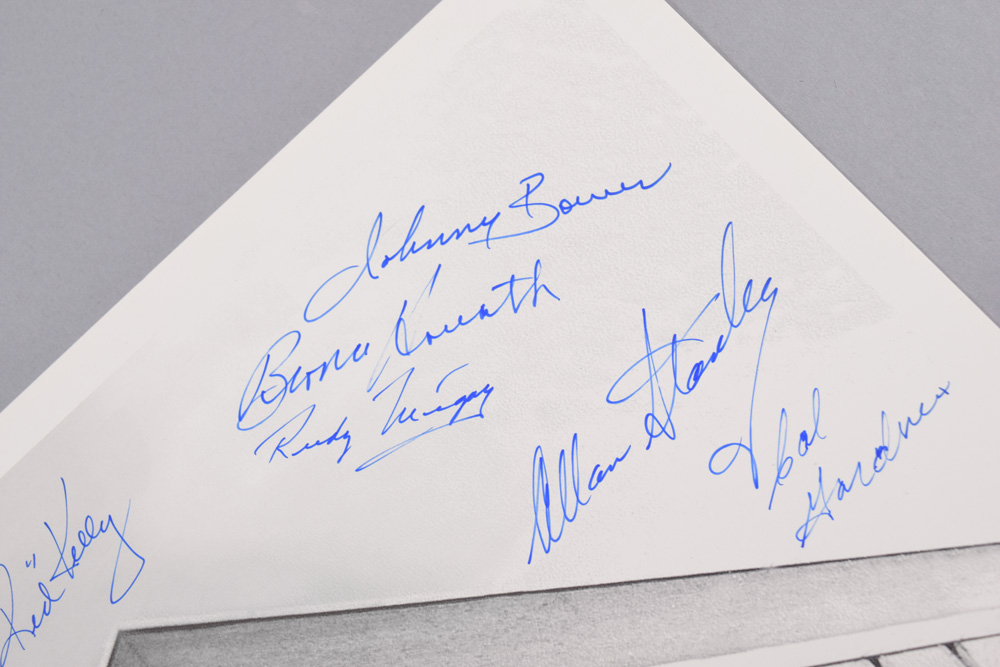 Johnny Bower
Bronco Horvath
Rudy Migay
Allan Stanley
Cal
Gardner
"Red" Kelly